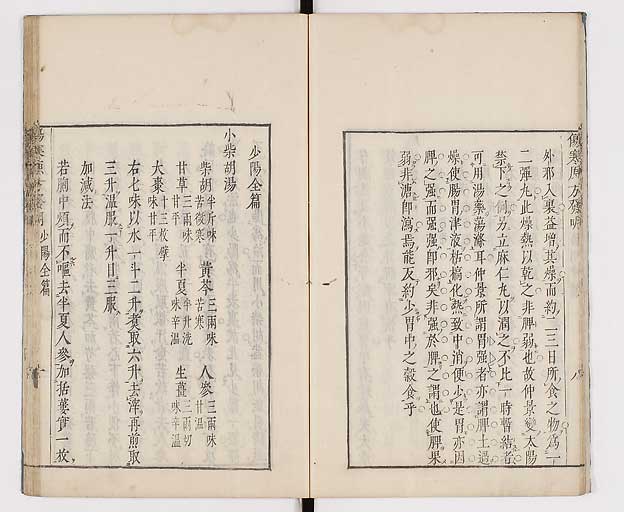 傷寒
外邪入裏益增其燥而約二三日所食之物爲一
二彈丸此燥熱以乾之非脾弱也故仲景變太陽
禁下之例另立麻仁丸以潤之不比一時暫結者
可用湯藥蕩滌耳仲景所謂胃强者亦謂脾土過
燥使腸胃津液枯槁化熱致中消便少是胃亦因
脾之强而强强即邪矣非强於脾之謂也使脾果
弱非溏即瀉焉能反約少胃中之穀食乎
少陽全篇
小柴胡湯
柴胡半斤味苦微寒 黃芩三兩味苦寒 人參三兩味甘溫
甘草三兩味甘平 半夏半升洗味辛溫 生薑三兩切味辛溫
大棗十三枚擘味甘平
右七味以水一斗二升煑取六升去滓再煎取
三升溫服一升日三服
加減法
若胸中煩而不嘔去半夏人參加括蔞實一枚
少陽全篇